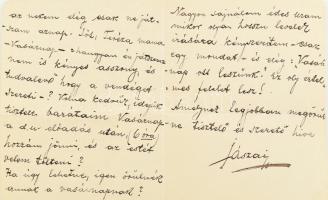 az nekem elég csak ne ját-
szam aznap. Sőt, Teréz mama
Vasárnap – hangyan és játszva
nem is kényes asszony és
tudvalevő hogy a vendéget
szereti –? Volna kedvük, idejük
tisztelt barátaim Vasárnap
a d.u. előadás után (6 óra)
hozzám jönni, és az estét
velem tölteni?
Ha úgy lehetne, igen örülnék
annak a vasárnapnak?
Nagyon sajnálom édes uram
mikor olyan hosszú levelek
írására kényszerítem – csak
egy mondat – és elég: "Vasár
nap ott leszünk." Ez oly értel-
mes felelet lesz!
Amelynek legjobban megörül-
ne tisztelő és szerető híve
Jászai